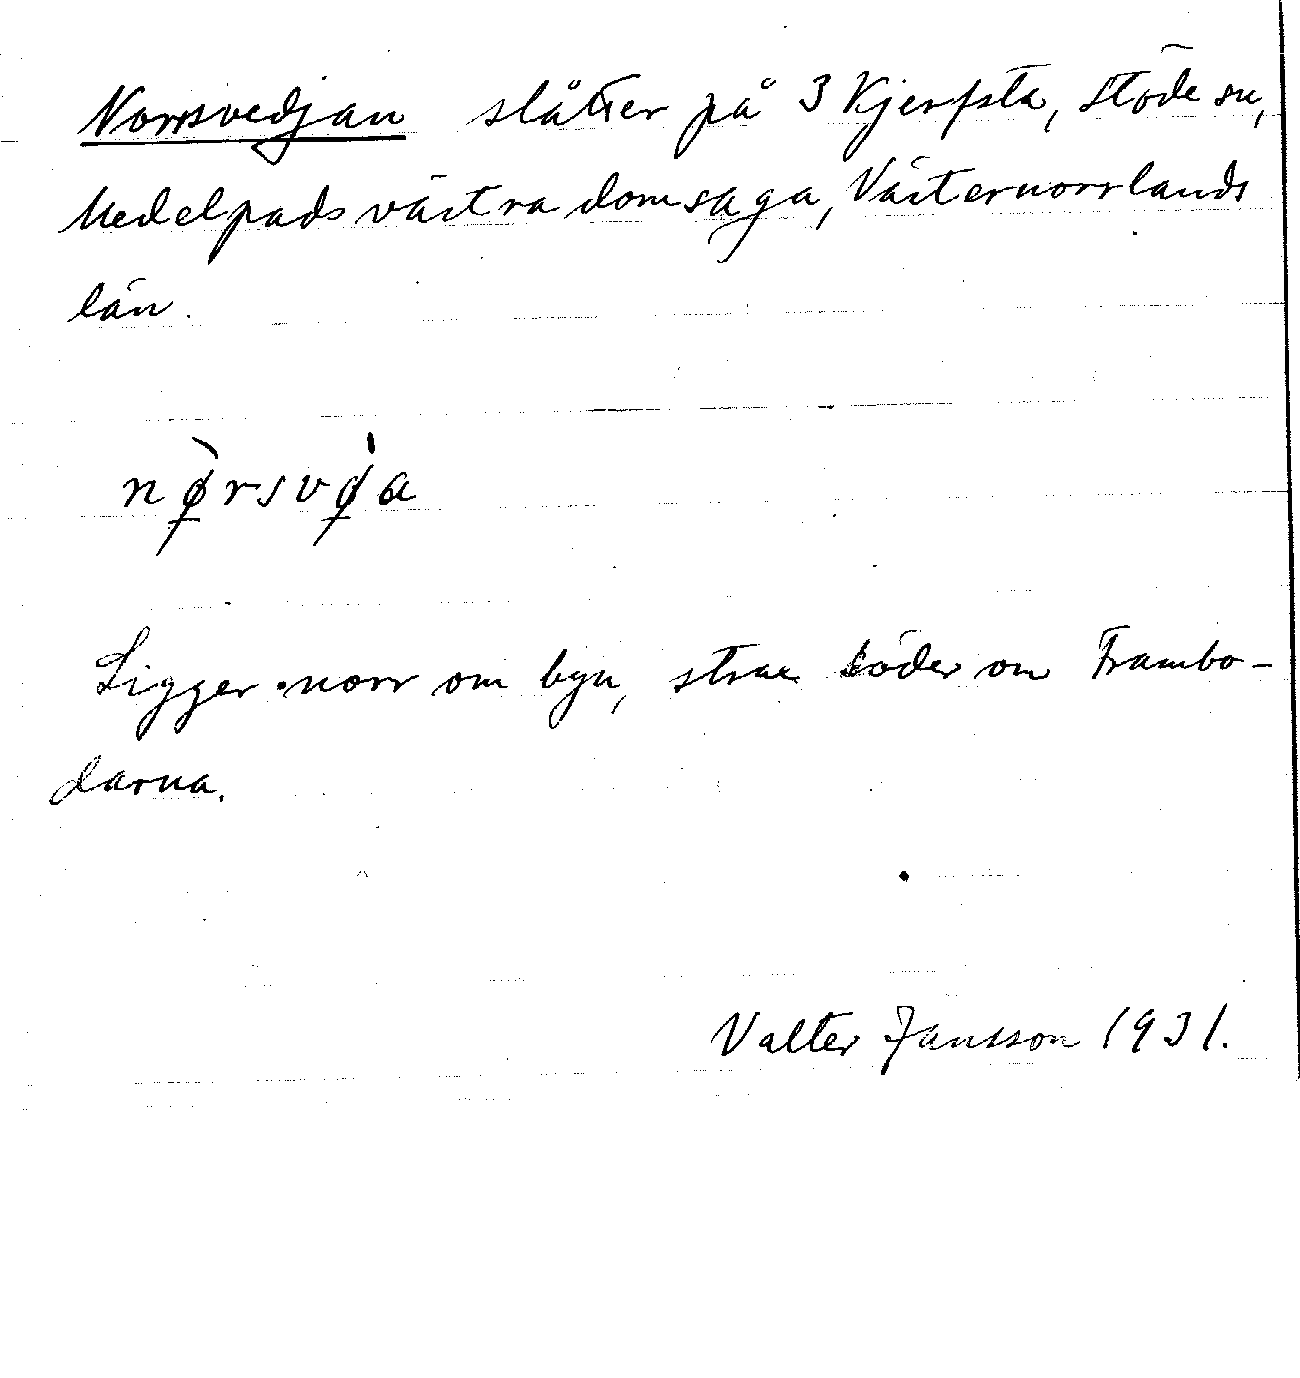 Norrsvedjan slåtter på 3 Kjerfsta, Stöde sn,
Medelpads västra domsaga, Västernorrlands
län.
Ligger norr om byn, strax söder om Frambo-
darna.
Valter Jansson 1931.